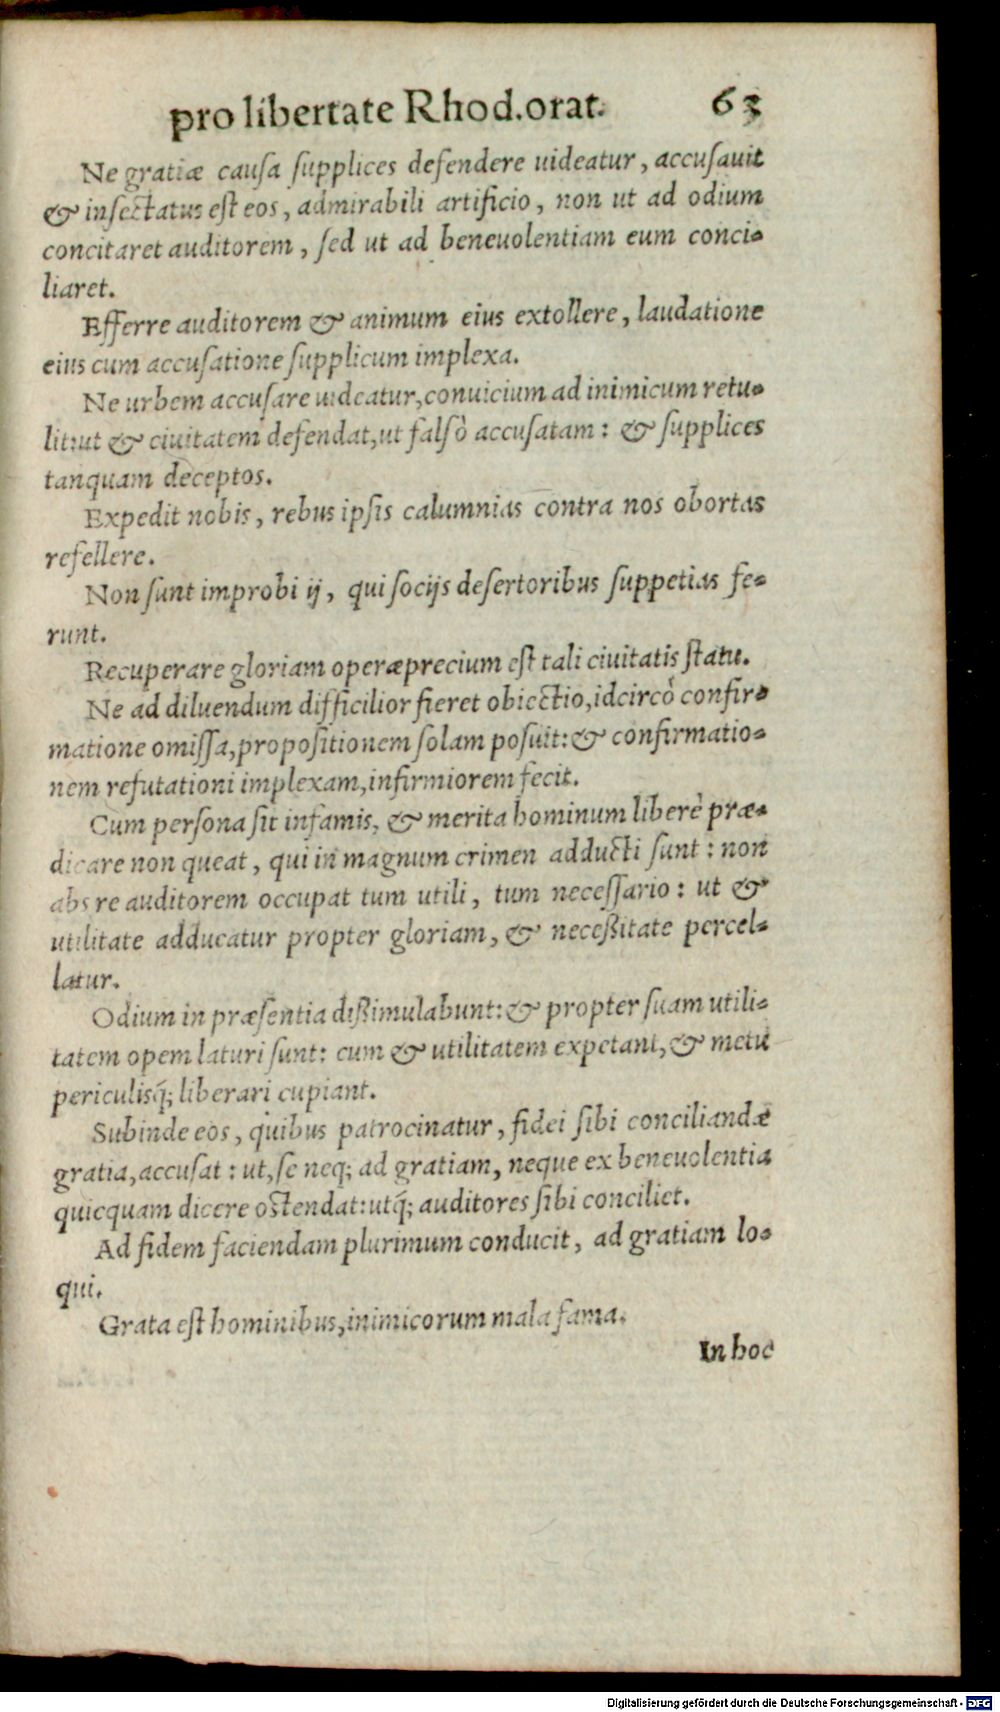 pro libertate Rhod.orat. 63
Ne gratiæ causa supplices defendere uideatur, accusauit
& insectatus est eos, admirabili artificio, non ut ad odium
concitaret auditorem, sed ut ad beneuolentiam eum conci-
liaret.
Efferre auditorem & animum eius extollere, laudatione
eius cum accusatione supplicum implexa.
Ne urbem accusare uideatur, conuicium ad inimicum retu-
lit: ut & ciuitatem defendat, ut falsò accusatam: & supplices
tanquam deceptos.
Expedit nobis, rebus ipsis calumnias contra nos obortas
refellere.
Non sunt improbi ij, qui socijs desertoribus suppetias fe-
runt.
Recuperare gloriam operæprecium est tali ciuitatis statu.
Ne ad diluendum difficilior fieret obiectio, idcircò confir-
matione omissa, propositionem solam posuit: & confirmatio-
nem refutationi implexam, infirmiorem fecit.
Cum persona sit infamis, & merita hominum liberè præ-
dicare non queat, qui in magnum crimen adducti sunt: non
abs re auditorem occupat tum utili, tum necessario: ut &
utilitate adducatur propter gloriam, & neceßitate percel-
latur.
Odium in præsentia dißimulabunt: & propter suam utili-
tatem opem laturi sunt: cum & utilitatem expetant, & metu
periculisq́; liberari cupiant.
Subinde eos, quibus patrocinatur, fidei sibi conciliandæ
gratia, accusat: ut, se neq; ad gratiam, neque ex beneuolentia
quicquam dicere ostendat: utq́; auditores sibi conciliet.
Ad fidem faciendam plurimum conducit, ad gratiam lo-
qui.
Grata est hominibus, inimicorum mala fama.
In hoc
Digitalisierung gefördert durch die Deutsche Forschungsgemeinschaft - DFG